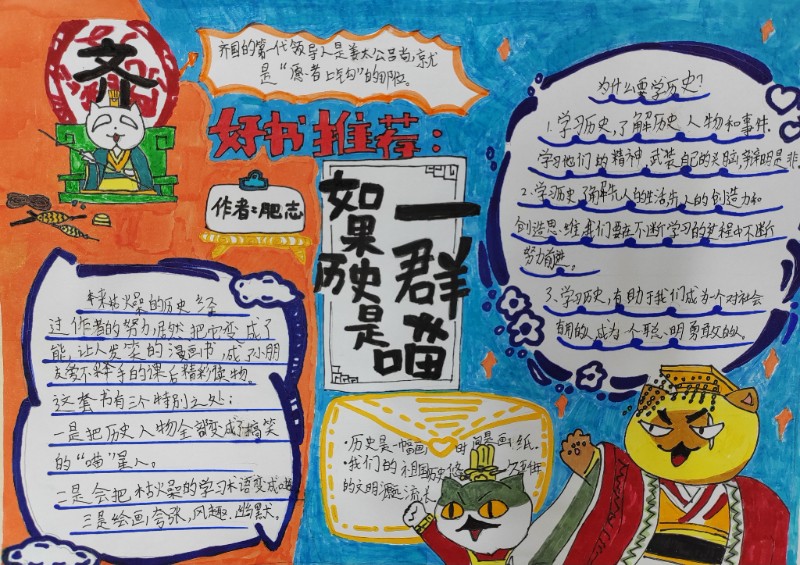 齐
齐国的第一代领导人是姜太公吕尚,就
是“愿者上钩”的那位。
好书推荐:
作者:肥志
如果历史是
一群喵
本来枯燥的历史经
过作者的努力居然把它变成了
能让人发笑的漫画书,成了小朋
友爱不释手的课后精彩读物。
这套书有三个特别之处:
一是把历史人物全都变成了搞笑
的“喵”星人。
二是会把枯燥的学习术语变成
三是绘画夸张,风趣、幽默。
·历史是一幅画 时间是画纸.
·我们的祖国历史悠
的文明源远流长
为什么要学历史?
1.学习历史,了解历史人物和事件.
学习他们的精神,武装自己的头脑,辨明是非
2.学习历史了解先人的生活,先人的创造力和
创造思维,我们要在不断学习的过程中不断
努力前进。
3、学习历史,有助于我们成为一个对社会
有用的,成为一个聪明勇敢的人